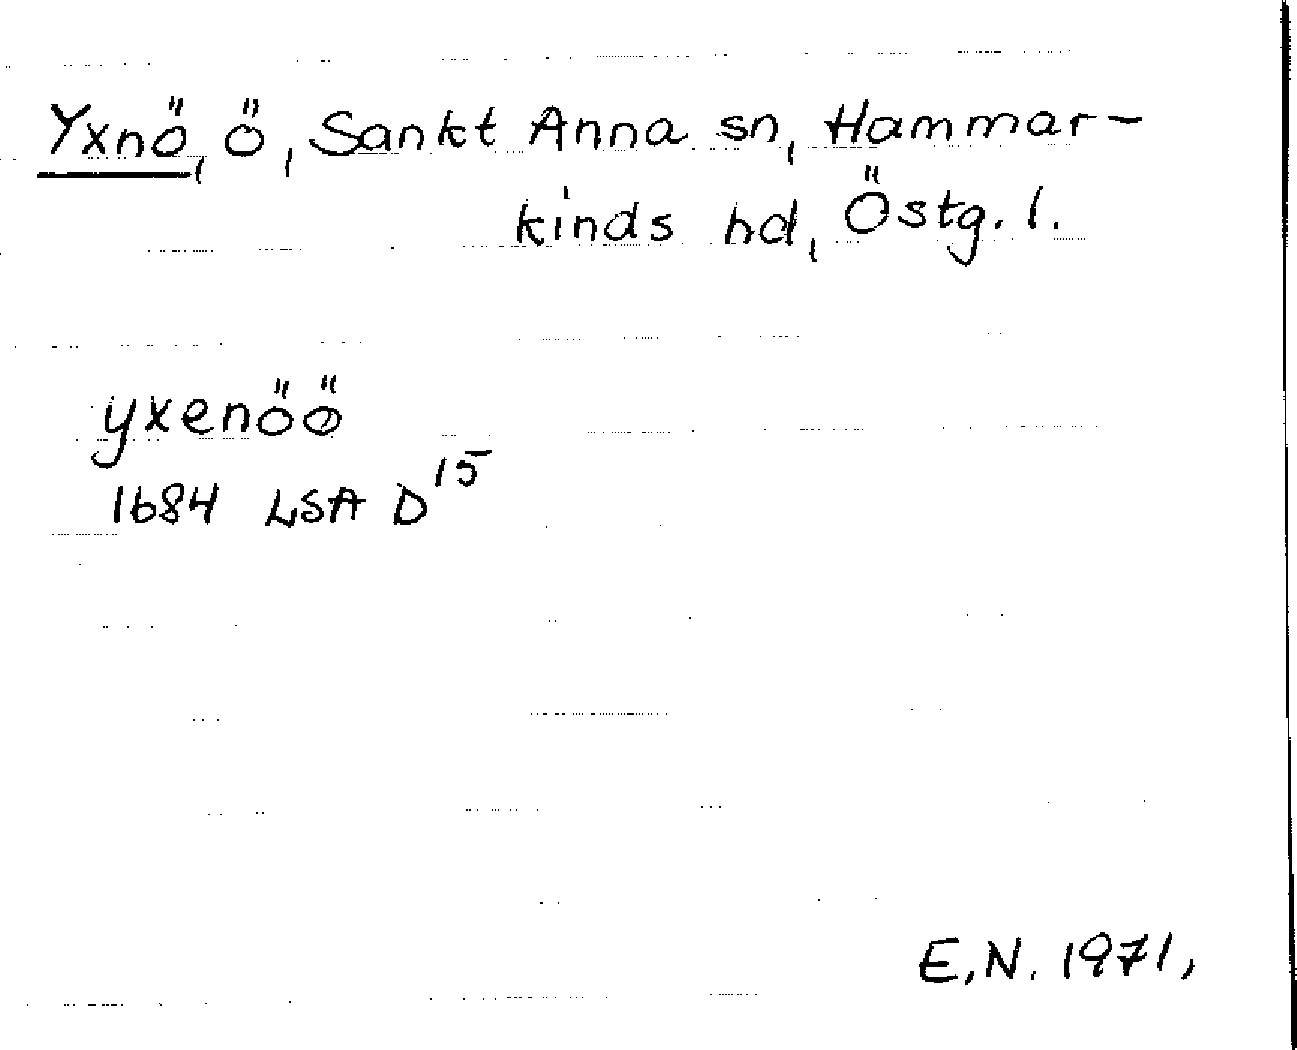 Yxnö, ö, Sankt Anna sn, Hammar-
kinds hd, Östg. l.
yxenöö
1684 LSA D15
E.N. 1971,